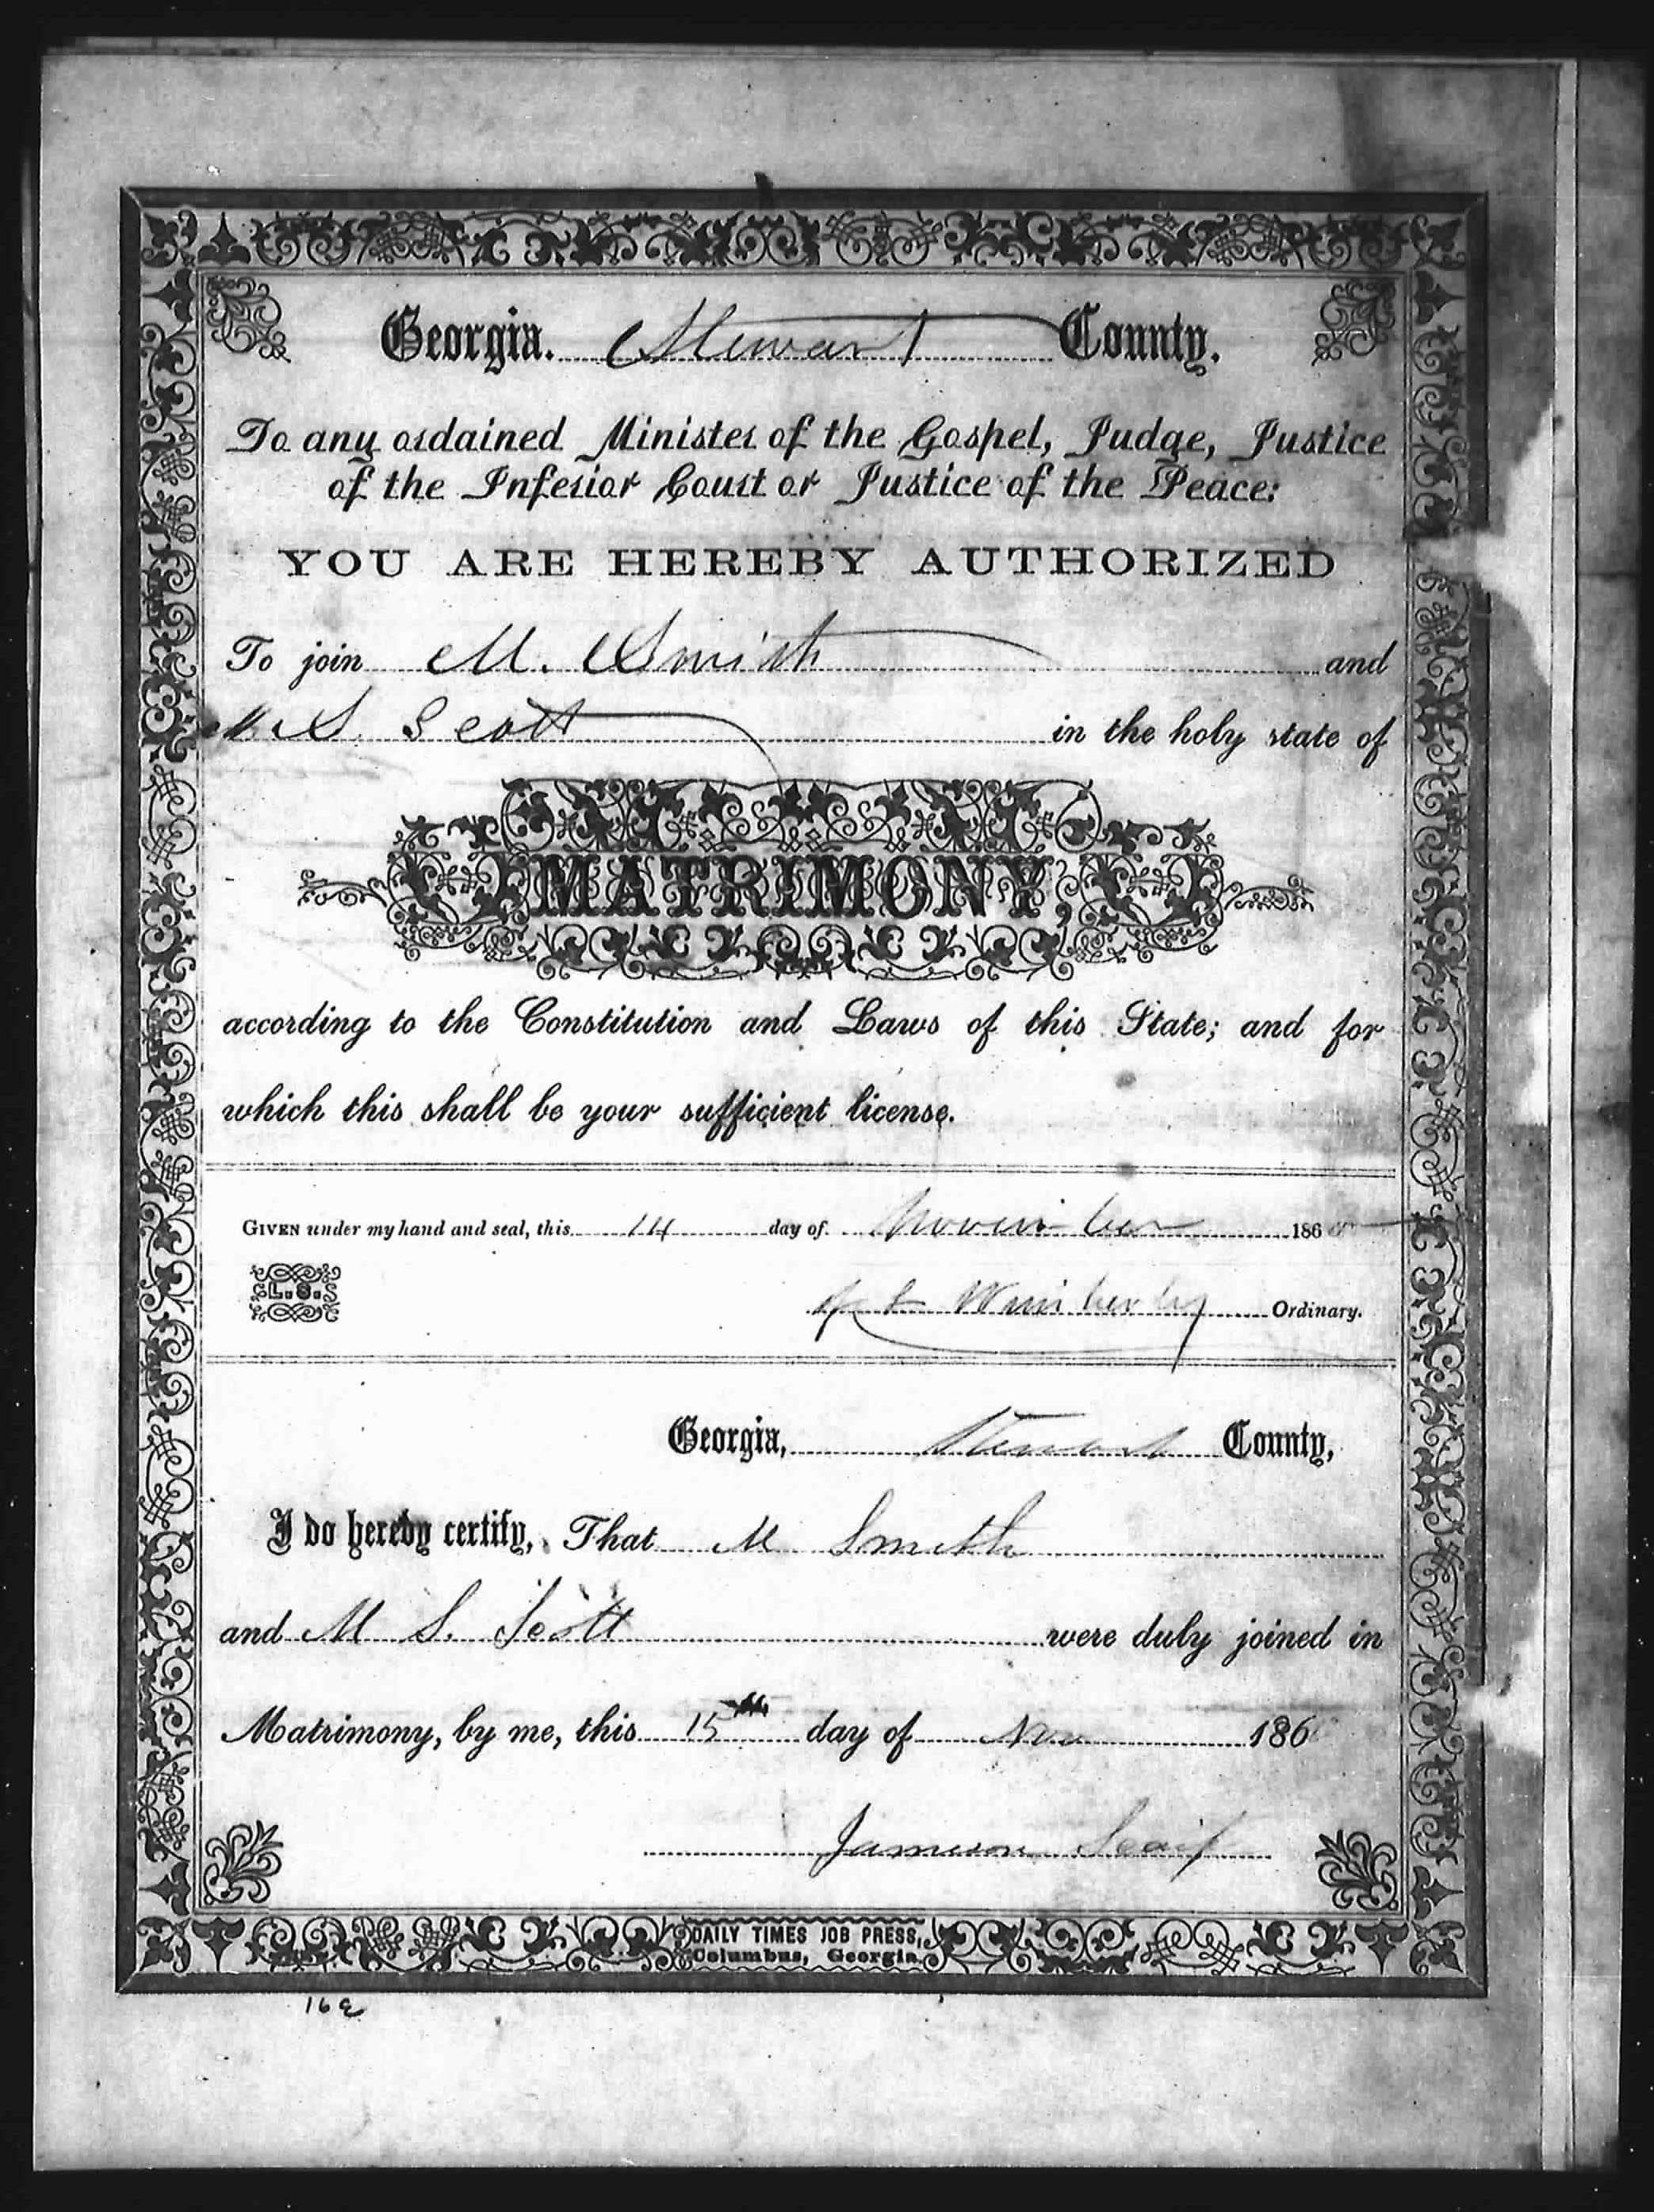 Georgia. Stewart County.
To any ordained Minister of the Gospel, Judge, Justice
of the Inferior Court or Justice of the Peace:
YOU ARE HEREBY AUTHORIZED
To join M. Smith and
M. S. Scott in the holy state of
MATRIMONY,
according to the Constitution and Laws of this State; and for
which this shall be your sufficient license.
GIVEN under my hand and seal, this 14 day of November 186
L.S.
Wimberly Ordinary.
Georgia, Stewart County,
I do hereby certify, That M Smith
and M S. Scott were duly joined in
Matrimony, by me, this 15th day of Nov 186
Jameson
DAILY TIMES JOB PRESS,
Columbus, Georgia.